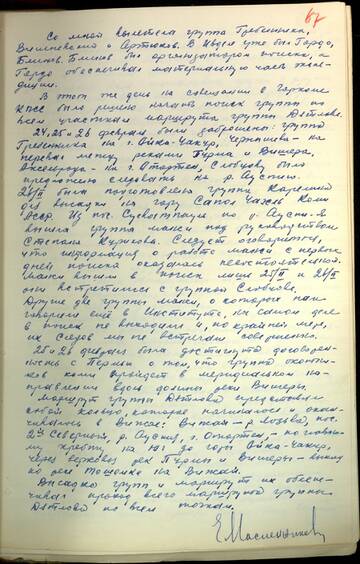 67
Со мной вылетела группа Гребенника,
и Артюков. В Ивделе уже был Гордо,
Блинов. Блинов был организатором поиска, а
Гордо обеспечивал материальную часть экспе-
диции.
В этот же день на совещании в Горкоме
КПСС было решено начать поиск группы по
всем участкам маршрута группы Дятлова.
24, 25 и 26 февраля были заброшены: группа
Гребенника на г. Ойка-Чакур, Чернышева - на
перевал между реками и Вишера,
Аксельрода - на г. Отортен, Слобцову было
предложено следовать на р. Ауспия.
была подготовлена группа Карелина
для высадки на гору Сапол Чахль Коми
Из пос. Суеватпауль по р. Ауспия
вышла группа манси под руководством
Степана Курикова. Следует оговориться,
что информация о работе манси с первых
дней поиска оказалась несостоятельной.
Манси вышли в поиск лишь 25/II и 26/II
они встретились с группой Слобцова.
Другие две группы манси, о которых нам
говорили ещё в Институте, на самом деле
в поиск не выходили и, по крайней мере,
их следов мы не встречали совершенно.
25 и 26 февраля была достигнута договорен-
ность с Пермью о том, что группа охотни-
ков коми пройдет в меридианальном на-
правлении вдоль долины реки Вишеры.
Маршрут группы Дятлова представлял
собой кольцо, которое начиналось и окан-
чивалось в Вижае: Вижай - р. Лозьва, пос.
2й Северный, р. Ауспия, г. Отортен, - по главно-
му хребту на юг до горы Ойка-Чакур,
через верховья рек и Вишеры - выход
по реке Тошемке на Вижай.
Высадка групп и маршрут их обеспе-
чивал проход всего маршрута группы
Дятлова по всем точкам.
Е. Масленников